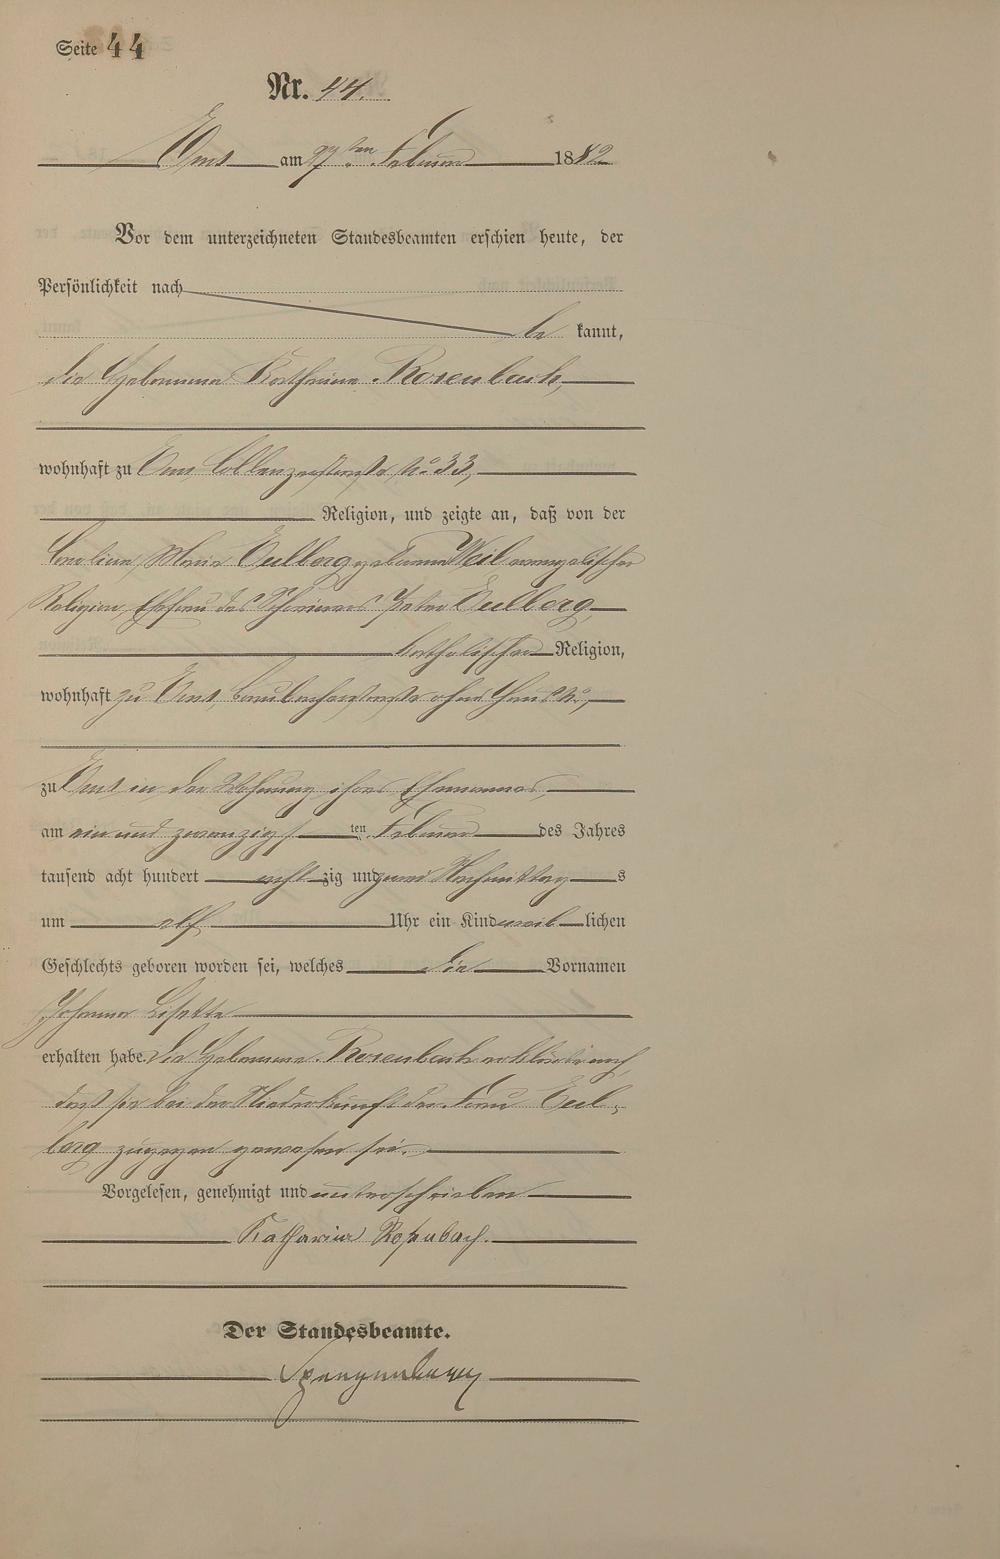 Seite 44
Nr. 44.
Ems am 27ten Februar 1882
Vor dem unterzeichneten Standesbeamten erschien heute, der
Persönlichkeit nach
be kannt,
die Hebamme Katharina Rosenbach,
wohnhaft zu Ems, Coblenzerstraße No 33,
Religion, und zeigte an, daß von der
Caroline Maria Eulberg geborene Weil evangelischer
Religion, Ehefrau des Schreiners Peter Eulberg,
katholischer Religion,
wohnhaft zu Ems, Braubacherstraße ohne Haus No,
zu Ems in der Wohnung ihres Ehemannes,
am ein und zwanzigs ten Februar des Jahres
tausend acht hundert acht zig und zwei Nachmittag s
um elf Uhr ein Kind weib lichen
Geschlechts geboren worden sei, welches die Vornamen
Johanna Lisette
erhalten habe. Die Hebamme Rosenbach erklärte noch,
daß sie bei der Niederkunft der Frau Eul-
berg zugegen gewesen sei.
Vorgelesen, genehmigt und unterschrieben
Katharina Rosenbach.
Der Standesbeamte.
Spangenberg